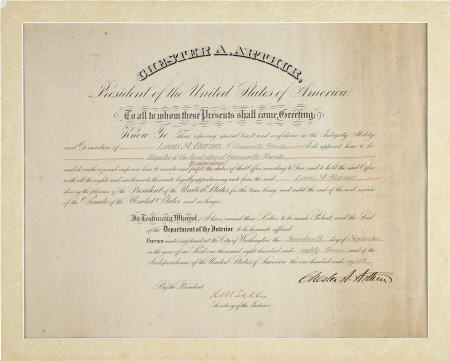 CHESTER A. ARTHUR,
President of the United States of America
To all to whom these Presents shall come, Greeting:
Know Ye That reposing special trust and confidence in the Integrity, Ability
and Discretion of Louis A. Barnes of Gainesville Florida I do appoint him to
be Register of the Land office at Gainesville Florida
and do authorize and empower him to execute and fulfil the duties of that Office according to Law, and to hold the said Office
with all the rights and emoluments thereunto legally appertaining unto him the said Louis A. Barnes
during the pleasure of the President of the United States for the time being, and until the end of the next session
of the Senate of the United States and no longer.
In Testimony Whereof, I have caused these Letters to be made Patent, and the Seal
of the Department of the Interior to be hereunto affixed.
Given under my hand at the City of Washington the day of September
in the year of our Lord one thousand eight hundred and eighty three, and of the
Independence of the United States of America the one hundred and eighth.
Chester A. Arthur
By the President:
Secretary of the Interior.